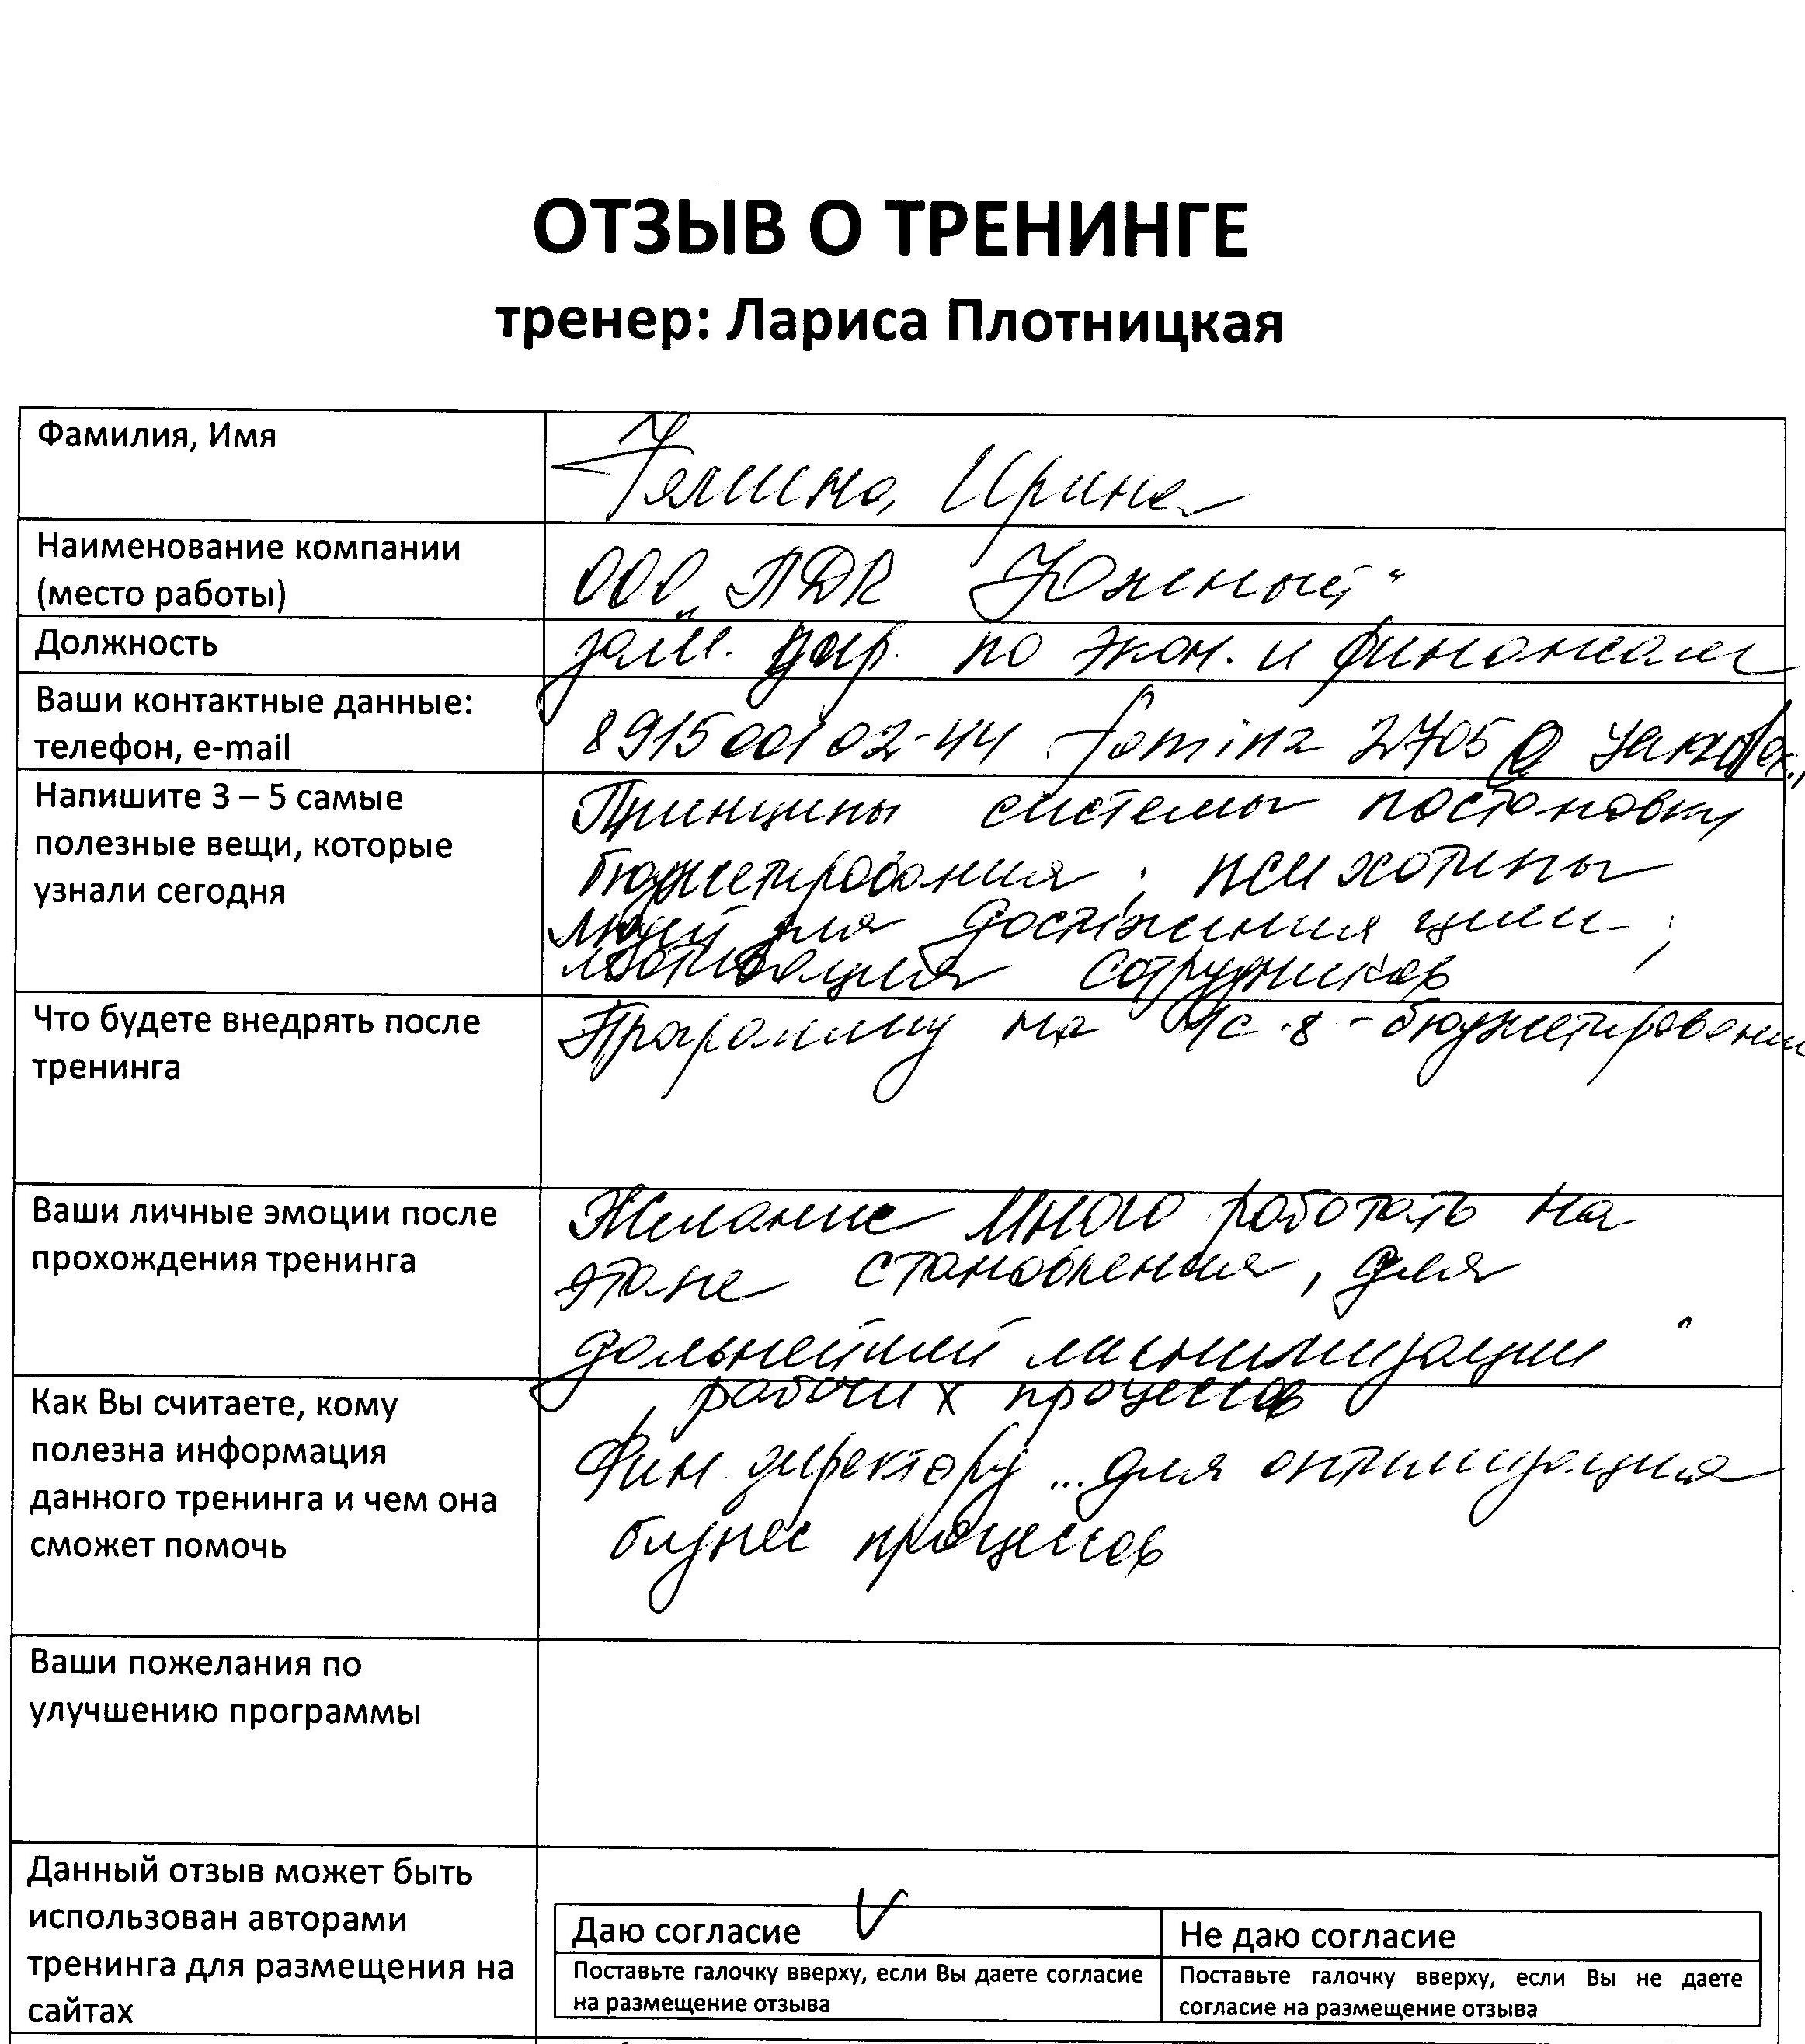 ОТЗЫВ О ТРЕНИНГЕ
тренер: Лариса Плотницкая
Фамилия, Имя
Ирина
Наименование компании
(место работы)
ООО „ПДК Южный"
Должность
зам. дир. по экон. и финансам
Ваши контактные данные:
телефон, e-mail
891500102-44 fomina 2705@
Напишите 3 – 5 самые
полезные вещи, которые
узнали сегодня
Принципы системы постановки
бюджетирования; психотипы
людей для достижения цели;
мотивация сотрудников
Что будете внедрять после
тренинга
Программу на 1с.8 - бюджетирование
Ваши личные эмоции после
прохождения тренинга
Желание много работать на
этапе становления, для
дальнейшей минимизации
рабочих процессов
Как Вы считаете, кому
полезна информация
данного тренинга и чем она
сможет помочь
Фин. директору ... для оптимизация
бизнес процессов
Ваши пожелания по
улучшению программы
Данный отзыв может быть
использован авторами
тренинга для размещения на
сайтах
Даю согласие
Поставьте галочку вверху, если Вы даете согласие
на размещение отзыва
Не даю согласие
Поставьте галочку вверху, если Вы не даете
согласие на размещение отзыва